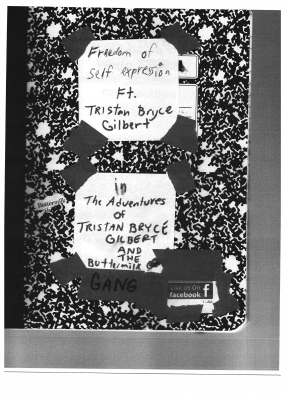 Freedom of
self expression
Ft.
Tristan Bryce
Gilbert
in
The Adventures
of
TRISTAN BRYCE
GILBERT
AND
THE
Buttermilk
GANG
Like Us On
facebook f